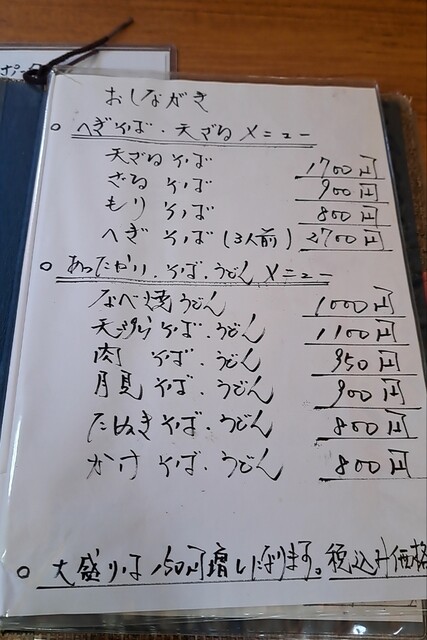 おしながき
○ へぎそば・天ざるメニュー
天ざるそば 1700円
ざるそば 900円
もりそば 800円
へぎそば(3人前) 2700円
○ あったかい・そば・うどんメニュー
なべ焼うどん 1000円
天ぷらそば・うどん 1100円
肉そば・うどん 950円
月見そば・うどん 900円
たぬきそば・うどん 800円
かけそば・うどん 800円
○ 大盛りは150円増しになります。税込み価格